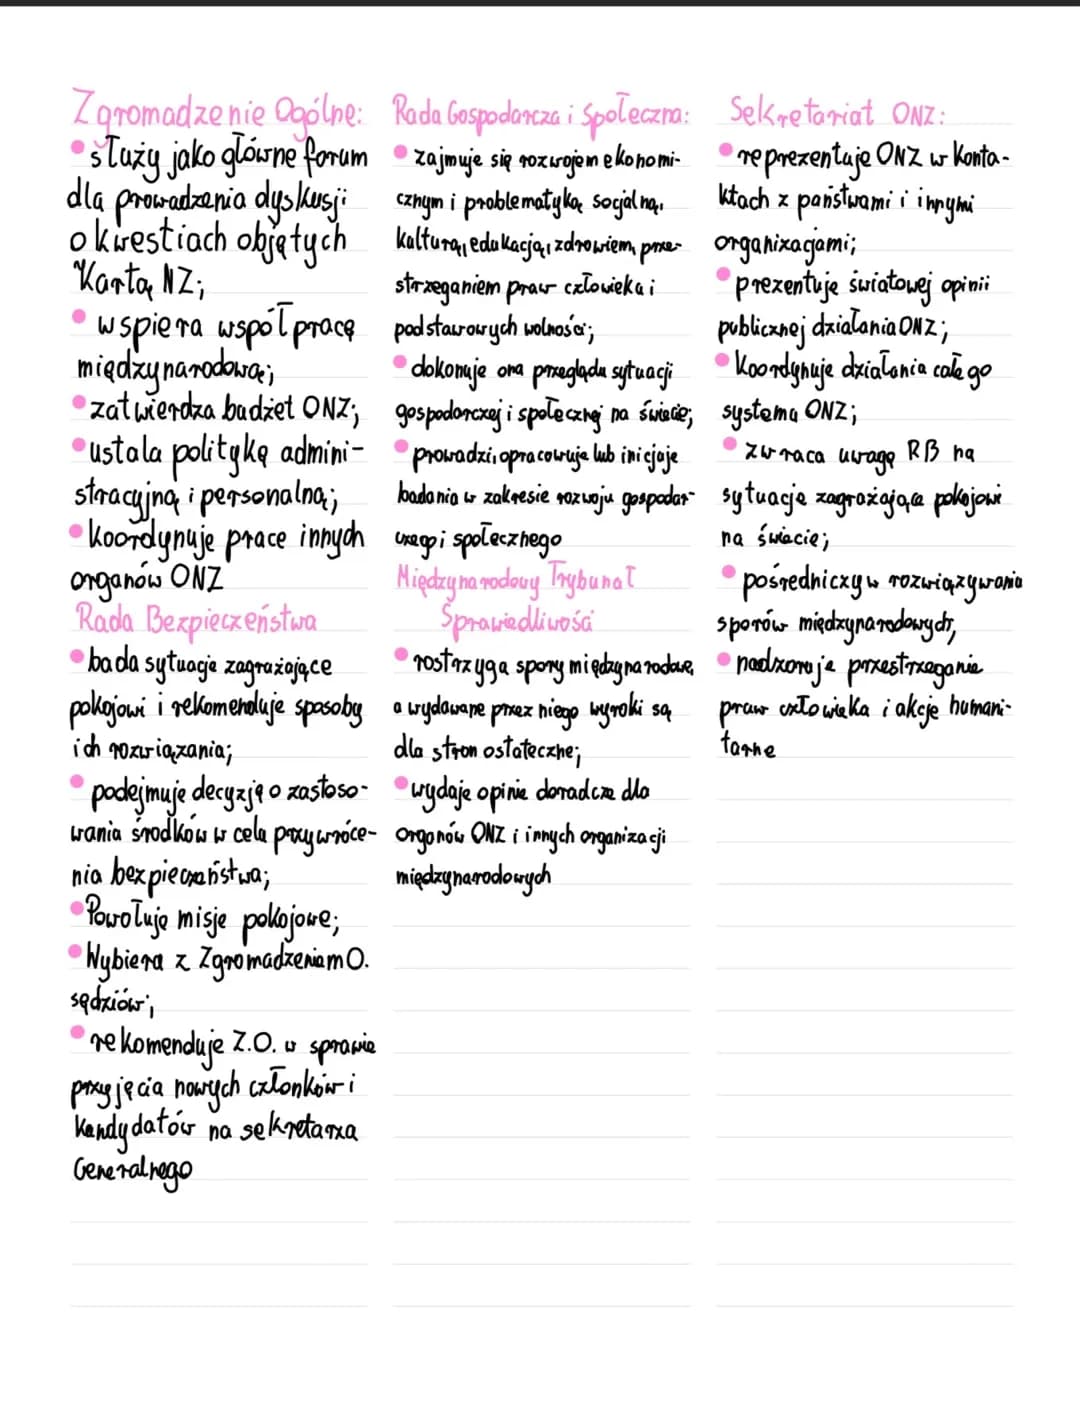 Zgromadzenie Ogólne:
• służy jako główne forum
dla prowadzenia dyskusji
o kwestiach objętych
Kartą NZ;
• wspiera współpracę
międzynarodową;
• zatwierdza budżet ONZ;
• ustala politykę admini-
stracyjną i personalną;
• koordynuje prace innych
organów ONZ
Rada Bezpieczeństwa
• bada sytuacje zagrażające
pokojowi i rekomenduje sposoby
ich rozwiązania;
• podejmuje decyzję o zastoso-
wania środków w celu przywróce-
nia bezpieczeństwa;
• Powołuje misje pokojowe;
• Wybiera z Zgromadzeniem O.
sędziów;
• rekomenduje Z.O. w sprawie
przyjęcia nowych członków i
kandydatów na sekretarza
Generalnego
Rada Gospodarcza i Społeczna:
• zajmuje się rozwojem ekonomi-
cznym i problematyką socjalną,
kulturą, edukacją, zdrowiem, prze-
strzeganiem praw człowieka i
podstawowych wolności;
• dokonuje ona przeglądu sytuacji
gospodarczej i społecznej na świecie;
• prowadzi, opracowuje lub inicjuje
badania w zakresie rozwoju gospodar-
czego i społecznego
Międzynarodowy Trybunał
Sprawiedliwości
• rostrzyga spory międzynarodowe,
a wydawane przez niego wyroki są
dla stron ostateczne;
• wydaje opinie doradcze dla
Organów ONZ i innych organizacji
międzynarodowych
Sekretariat ONZ:
• reprezentuje ONZ w konta-
ktach z państwami i innymi
organizacjami;
• prezentuje światowej opinii
publicznej działania ONZ;
• koordynuje działania całego
systemu ONZ;
• zwraca uwagę RB na
sytuacje zagrażające pokojowi
na świecie;
• pośredniczy w rozwiązywania
sporów międzynarodowych,
• nadzoruje przestrzeganie
praw człowieka i akcje humani-
tarne